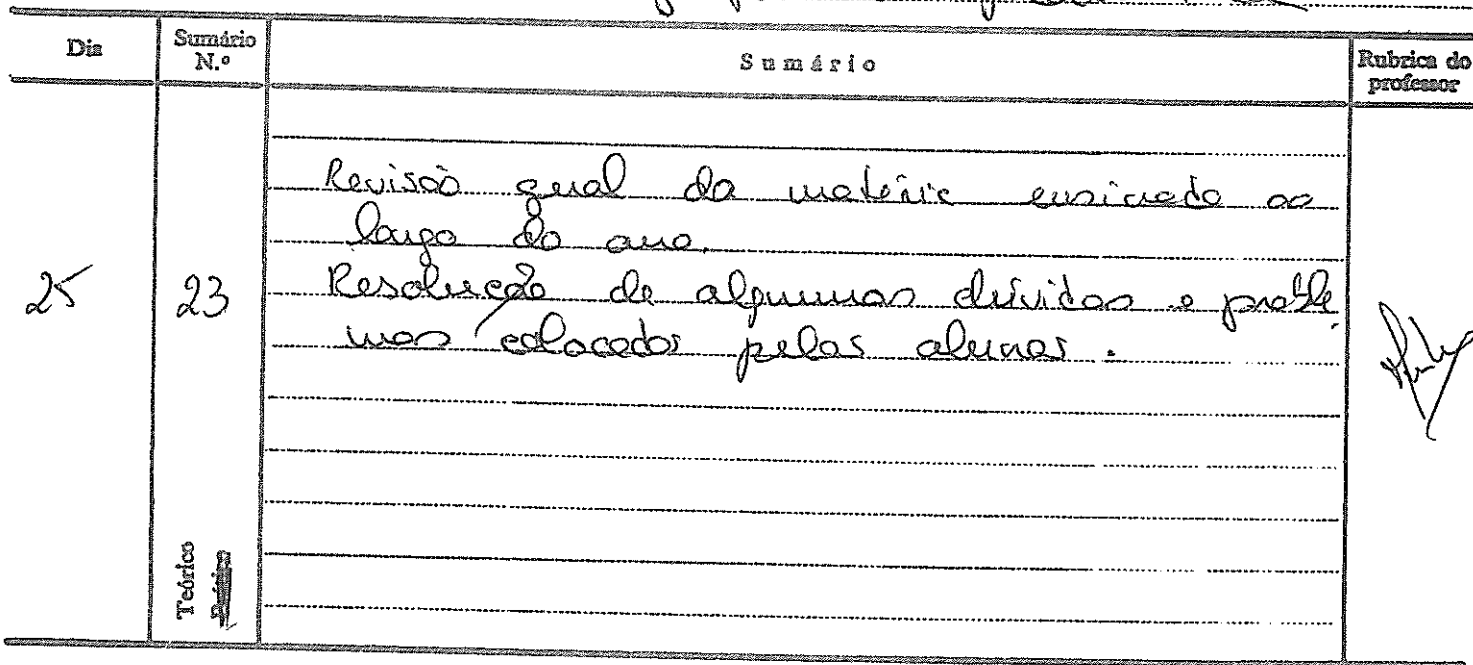 Dia
Sumário N.º
Sumário
Rubrica do professor
25
23
Revisão geral da matéria ensinada ao
longo do ano.
Resolução de algumas dúvidas e proble
mas colocados pelos alunos.
Teórico